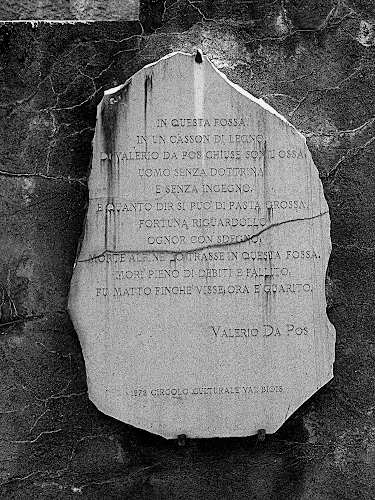 IN QUESTA FOSSA,
IN UN CASSON DI LEGNO,
DI VALERIO DA POS CHIUSE SONO L'OSSA,
UOMO SENZA DOTTRINA
E SENZA INGEGNO,
E QUANTO DIR SI PUO' DI PASTA GROSSA,
FORTUNA RIGUARDOLLO
OGNOR CON SDEGNO,
MORTE ALFINE LO TRASSE IN QUESTA FOSSA.
MORÌ PIENO DI DEBITI E FALLITO,
FU MATTO FINCHÈ VISSE, ORA È GUARITO.
VALERIO DA POS
1978 CIRCOLO CULTURALE VAL BIOIS